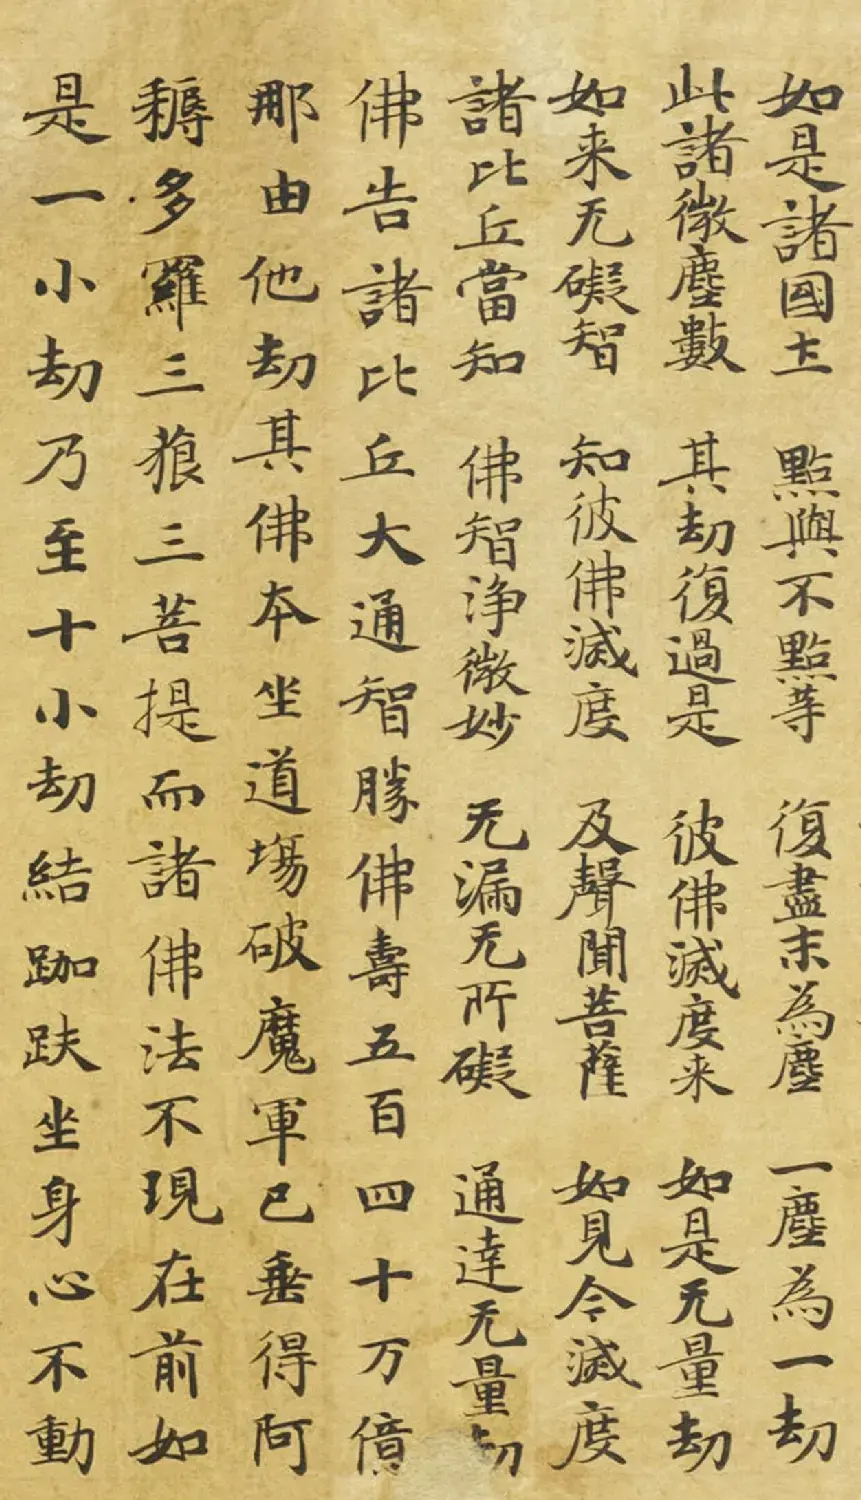 如是諸國土 點與不點等 復盡末為塵 一塵為一劫
此諸微塵數 其劫復過是 彼佛滅度来 如是无量劫
如来无礙智 知彼佛滅度 及聲聞菩薩 如見今滅度
諸比丘當知 佛智淨微妙 无漏无所礙 通達无量劫
佛告諸比丘大通智勝佛壽五百四十万億
那由他劫其佛本坐道場破魔軍已垂得阿
耨多羅三藐三菩提而諸佛法不現在前如
是一小劫乃至十小劫結跏趺坐身心不動